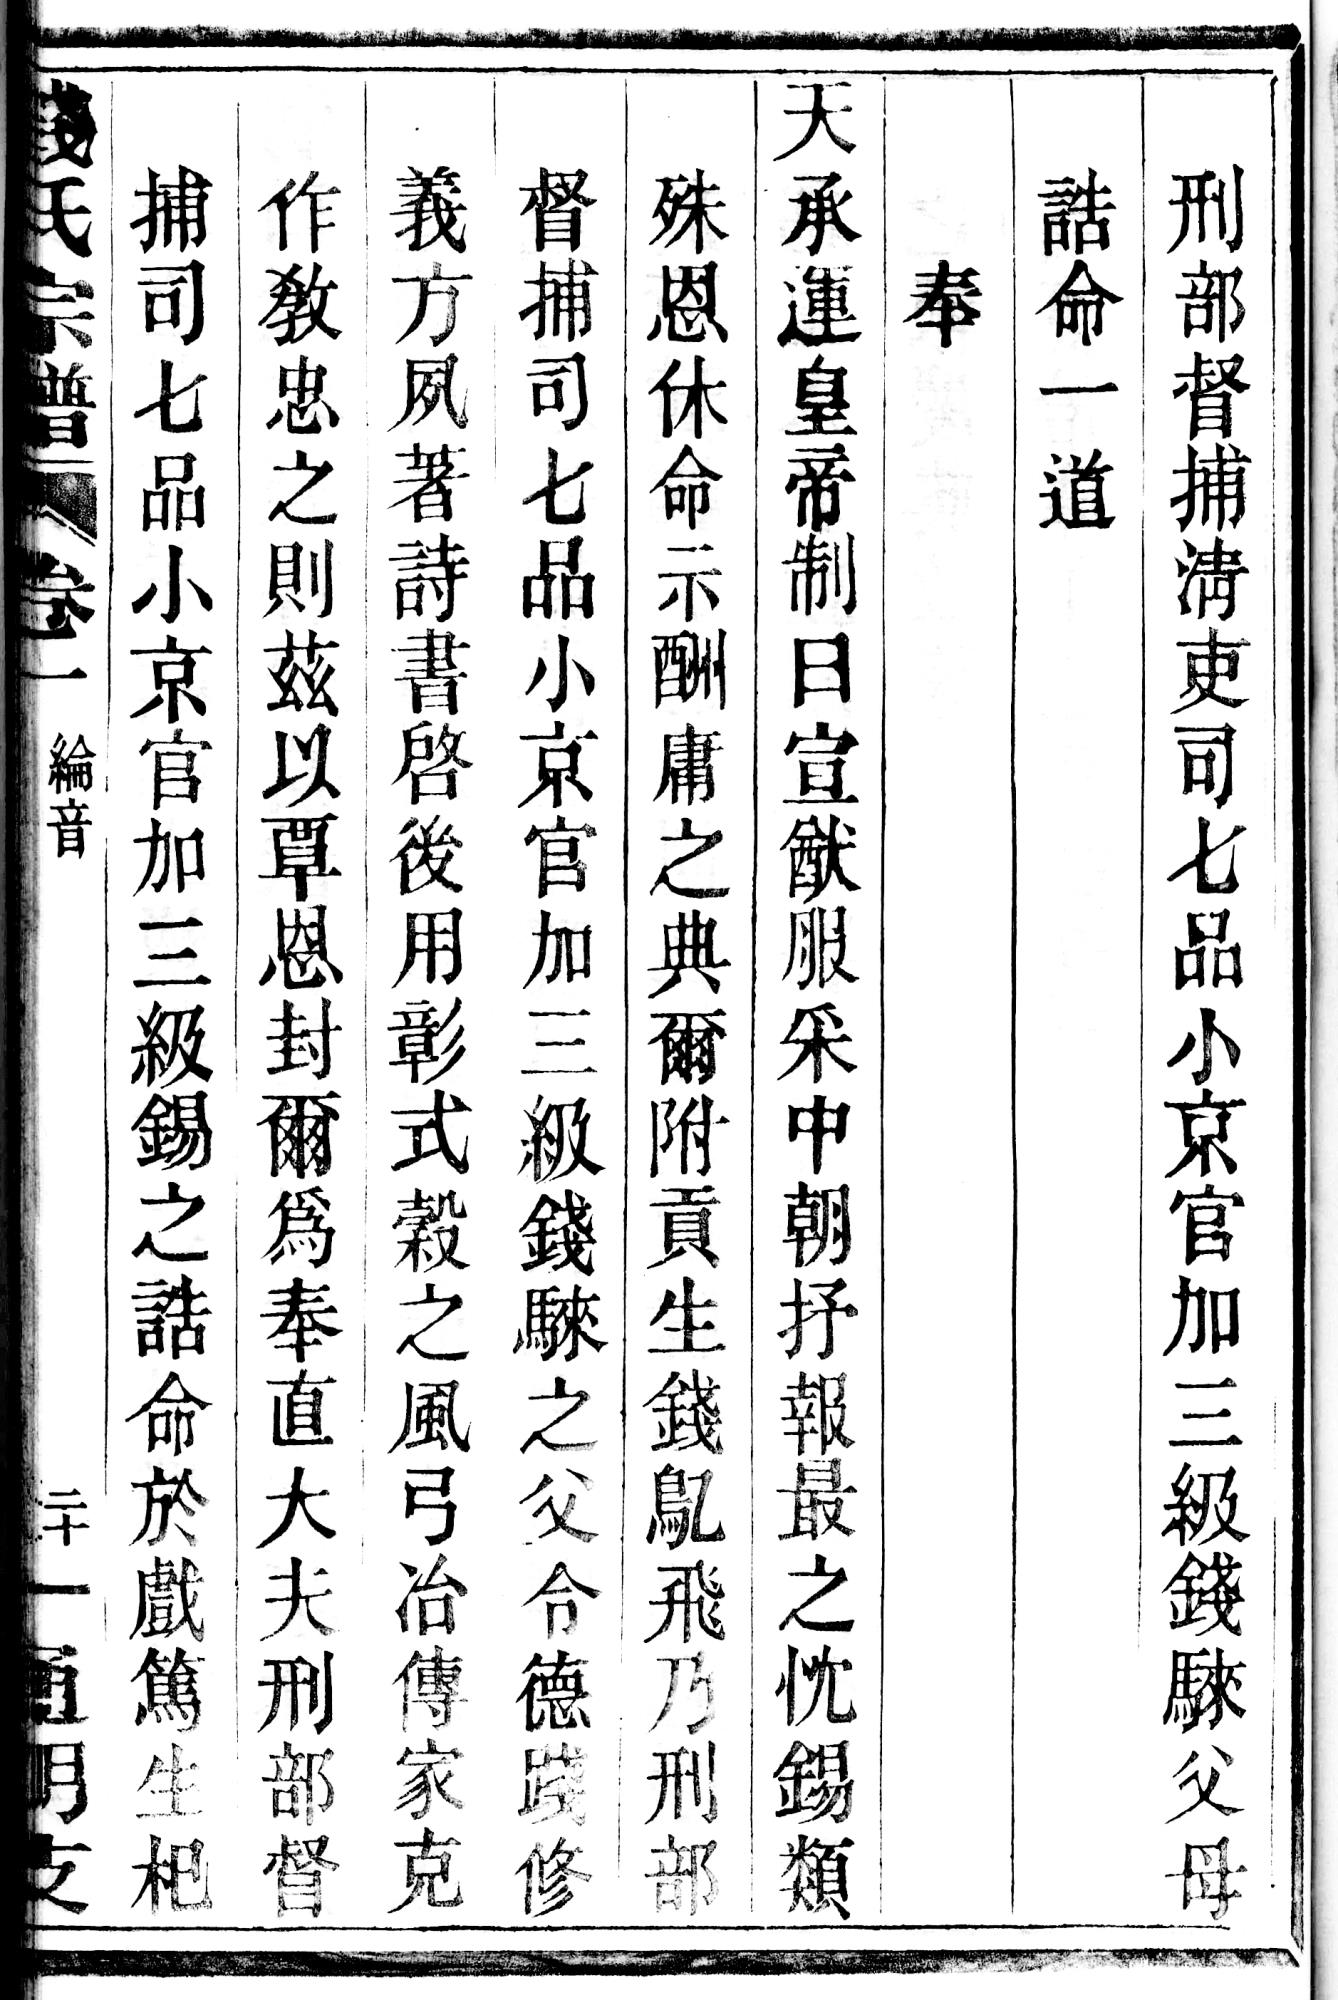 刑部督捕淸吏司七品小京官加三級錢騋父母
誥命一道
奉
天承運皇帝制曰宣猷服采中朝抒報最之忱錫類
殊恩休命示酬庸之典爾附貢生錢鳦飛乃刑部
督捕司七品小京官加三級錢騋之父令德踐修
義方夙著詩書啓後用彰式穀之風弓冶傳家克
作敎忠之則茲以覃恩封爾爲奉直大夫刑部督
捕司七品小京官加三級錫之誥命於戲篤生杞
錢氏宗譜 卷一 綸音 二十一 通明支